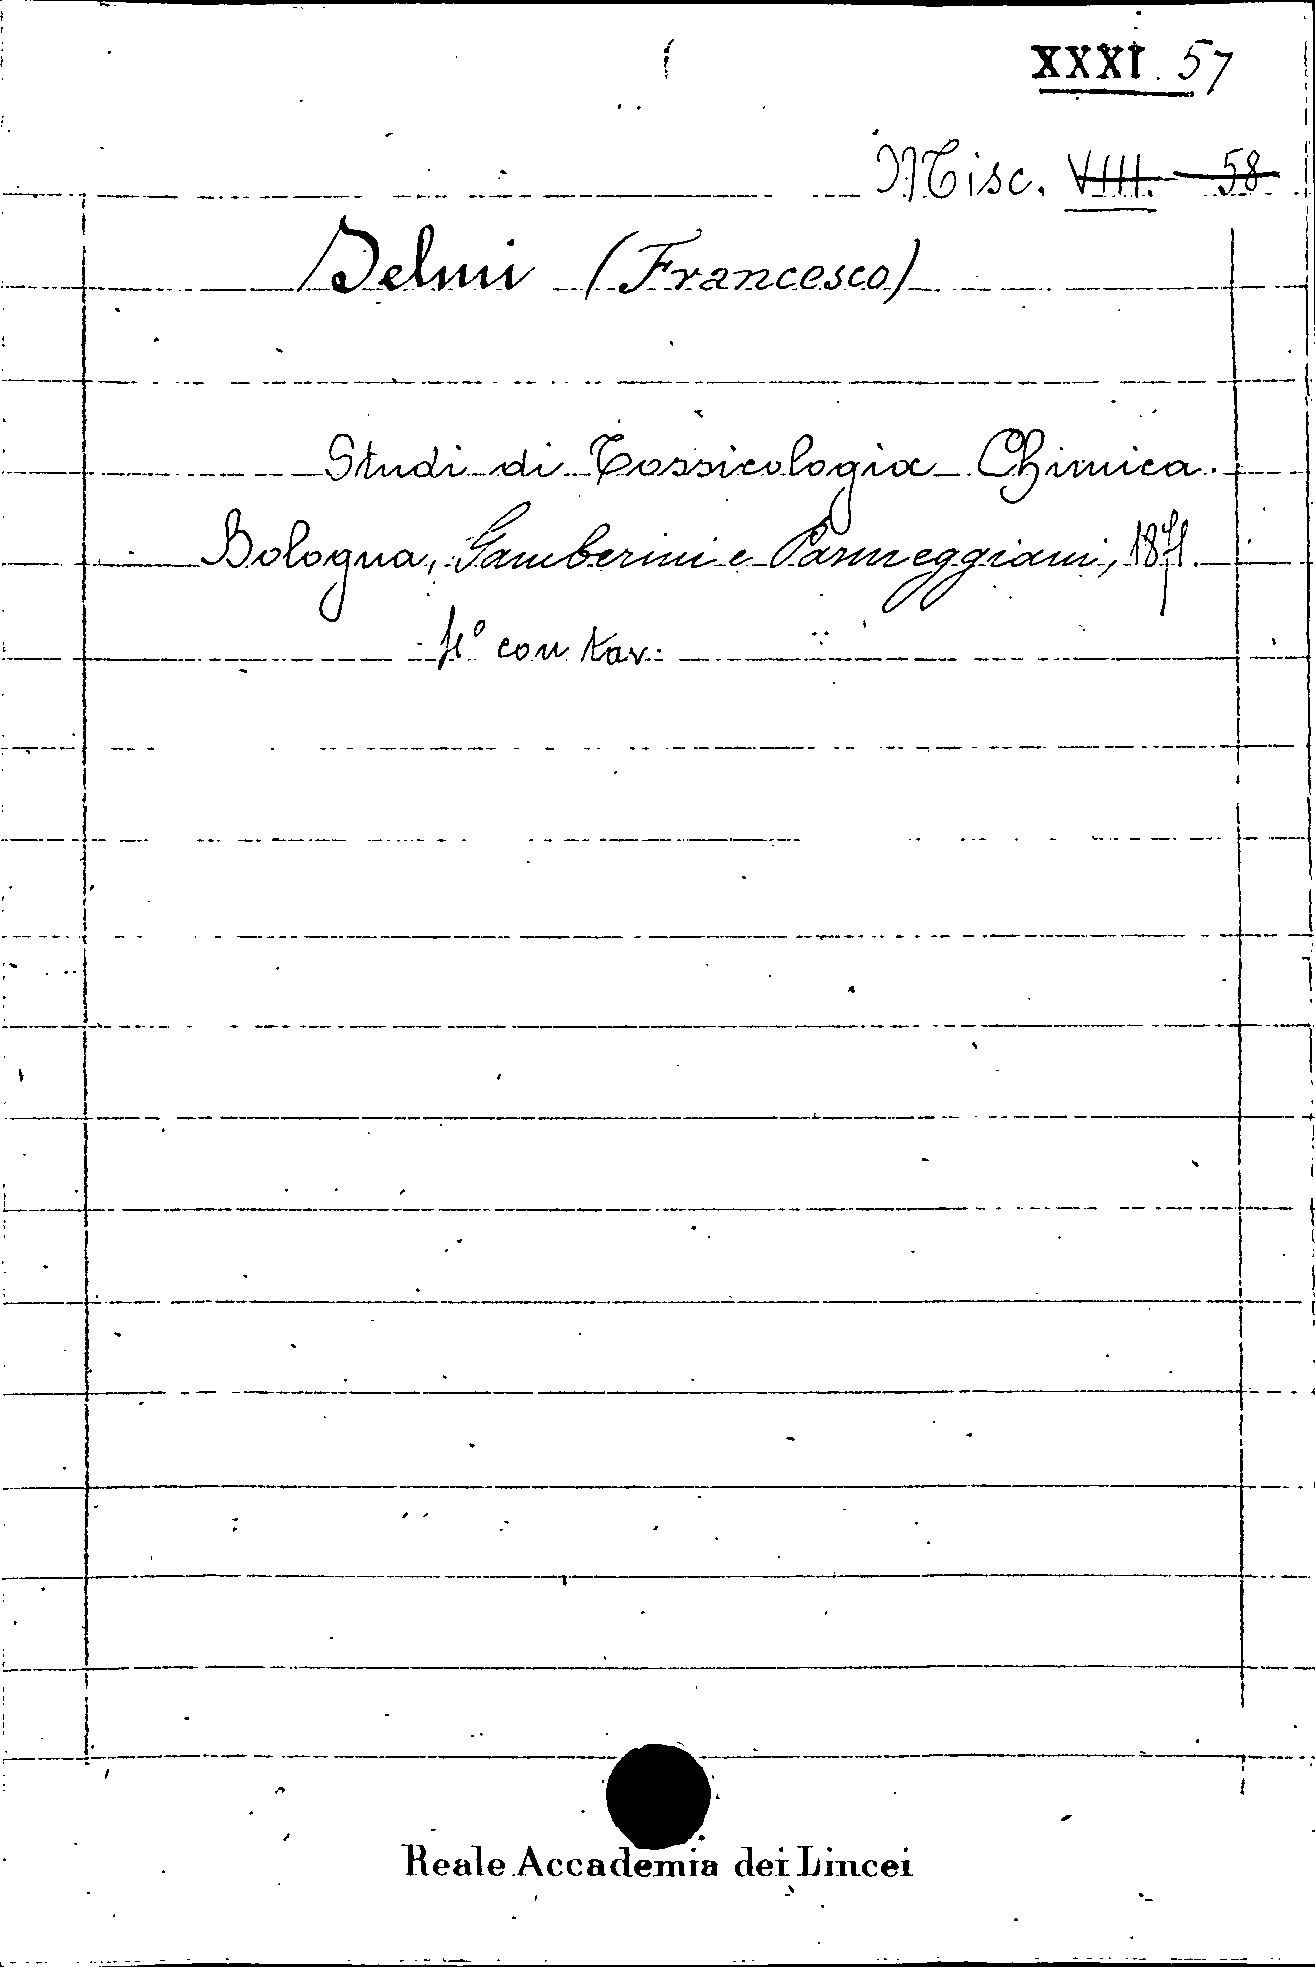 XXXI. 57
Misc. VIII. 58
Selmi (Francesco)
Studi di Tossicologia Chimica.
Bologna, Gamberini e Parmeggiani, 1871.
4° con tav.
Reale Accademia dei Lincei